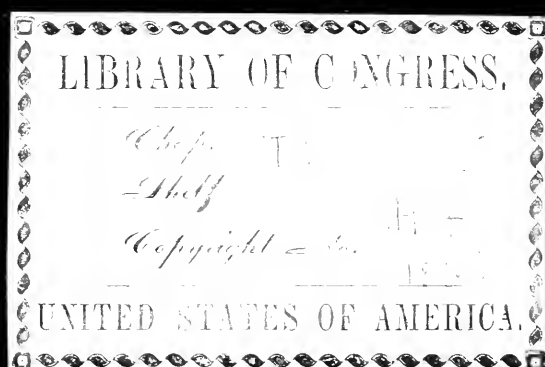 LIBRARY OF CONGRESS.
Chap. T
Shelf
Copyright No.
UNITED STATES OF AMERICA.